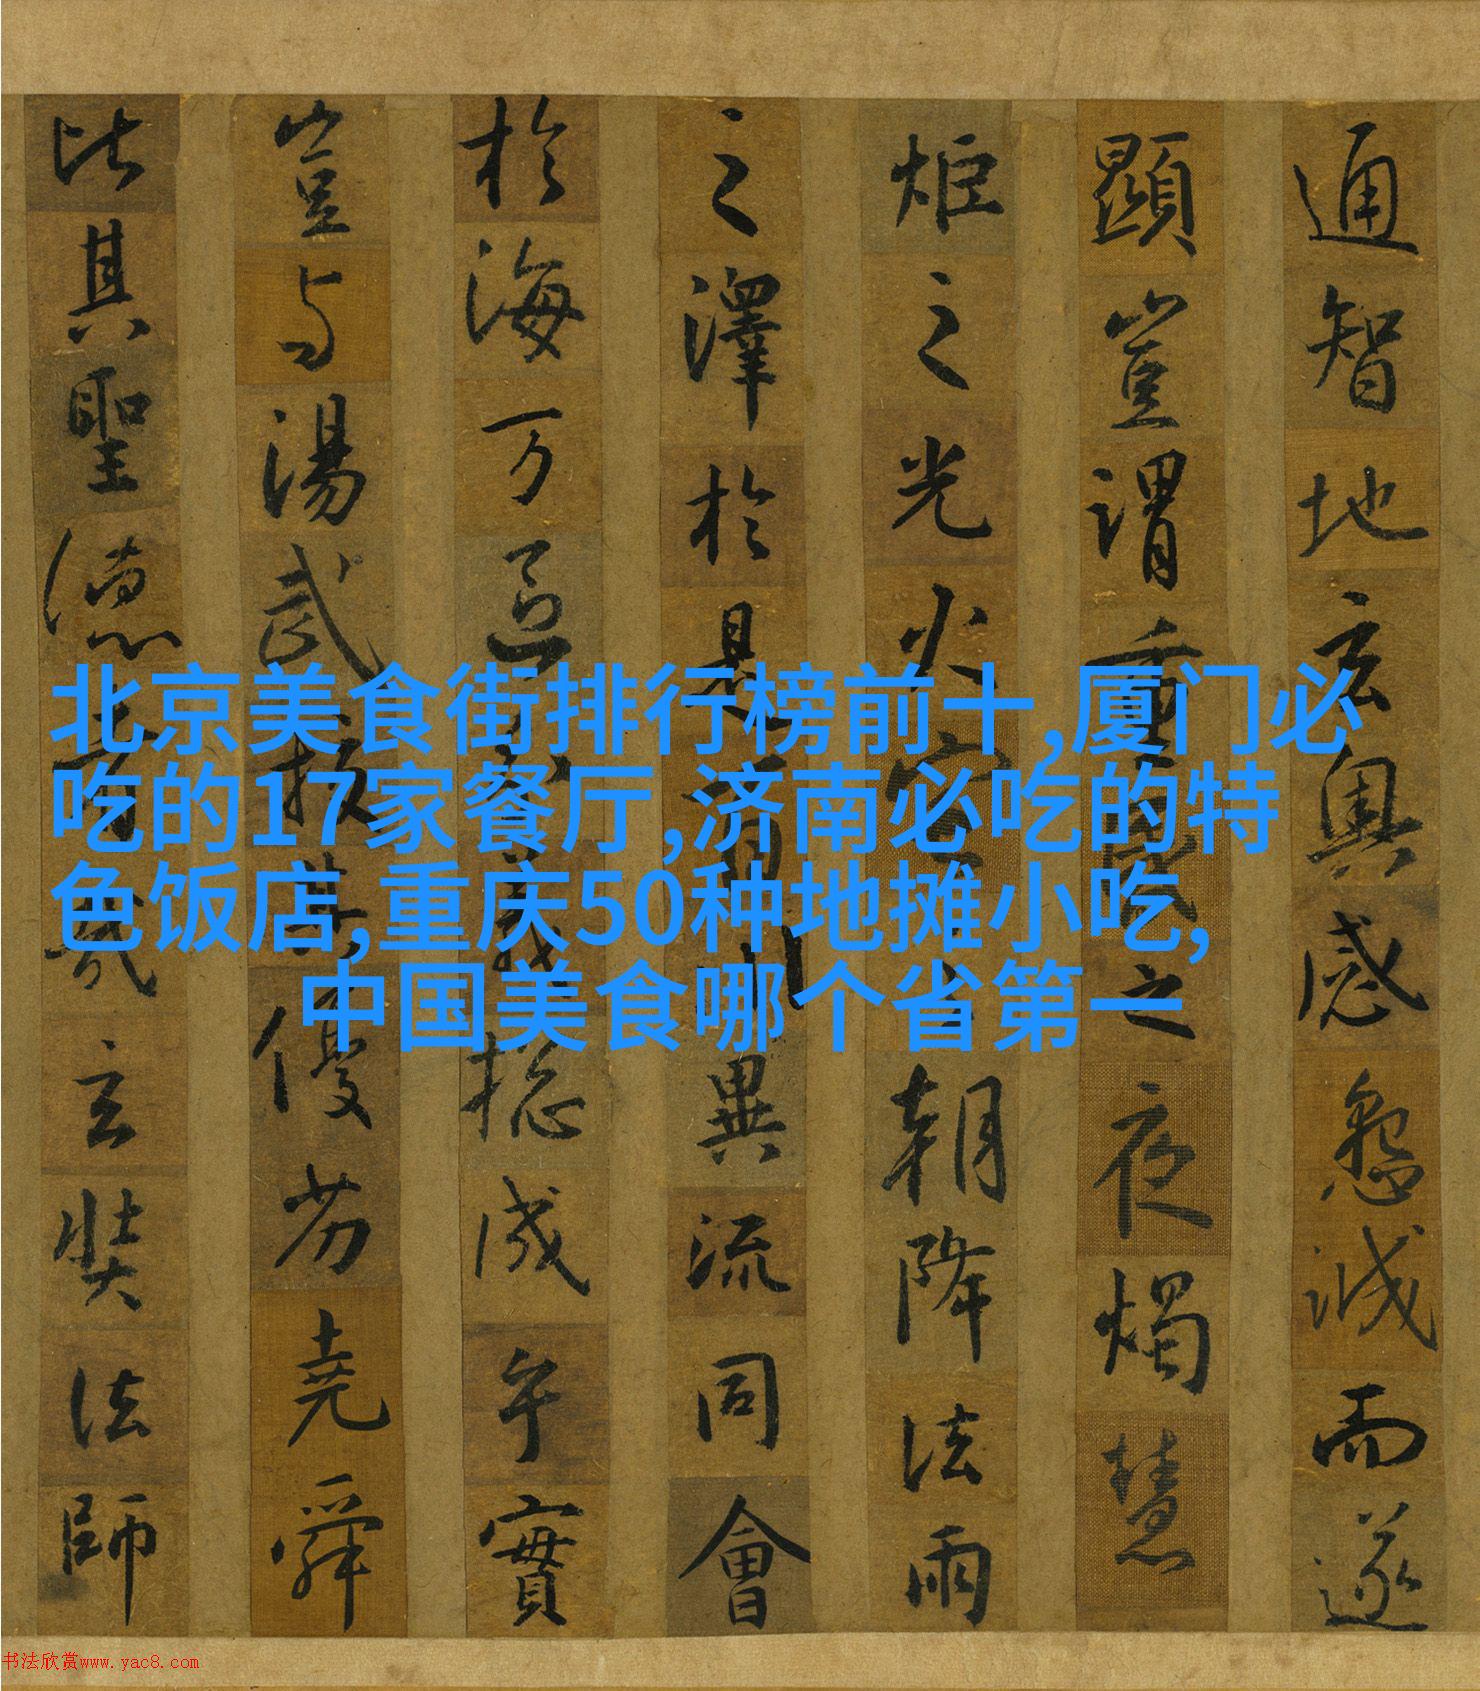 通智地玄奧感懇誠而遂
顯豈謂重昏之夜燭慧
炬之光火宅之朝降法雨
之澤於是百川異流同會
於海万區分義揔成乎實
豈与湯武挍其優劣堯舜
比其聖德者哉玄奘法師
北京美食街排行榜前十,厦门必
吃的17家餐厅,济南必吃的特
色饭店,重庆50种地摊小吃,
中国美食哪个省第一
书法欣赏www.yac8.com